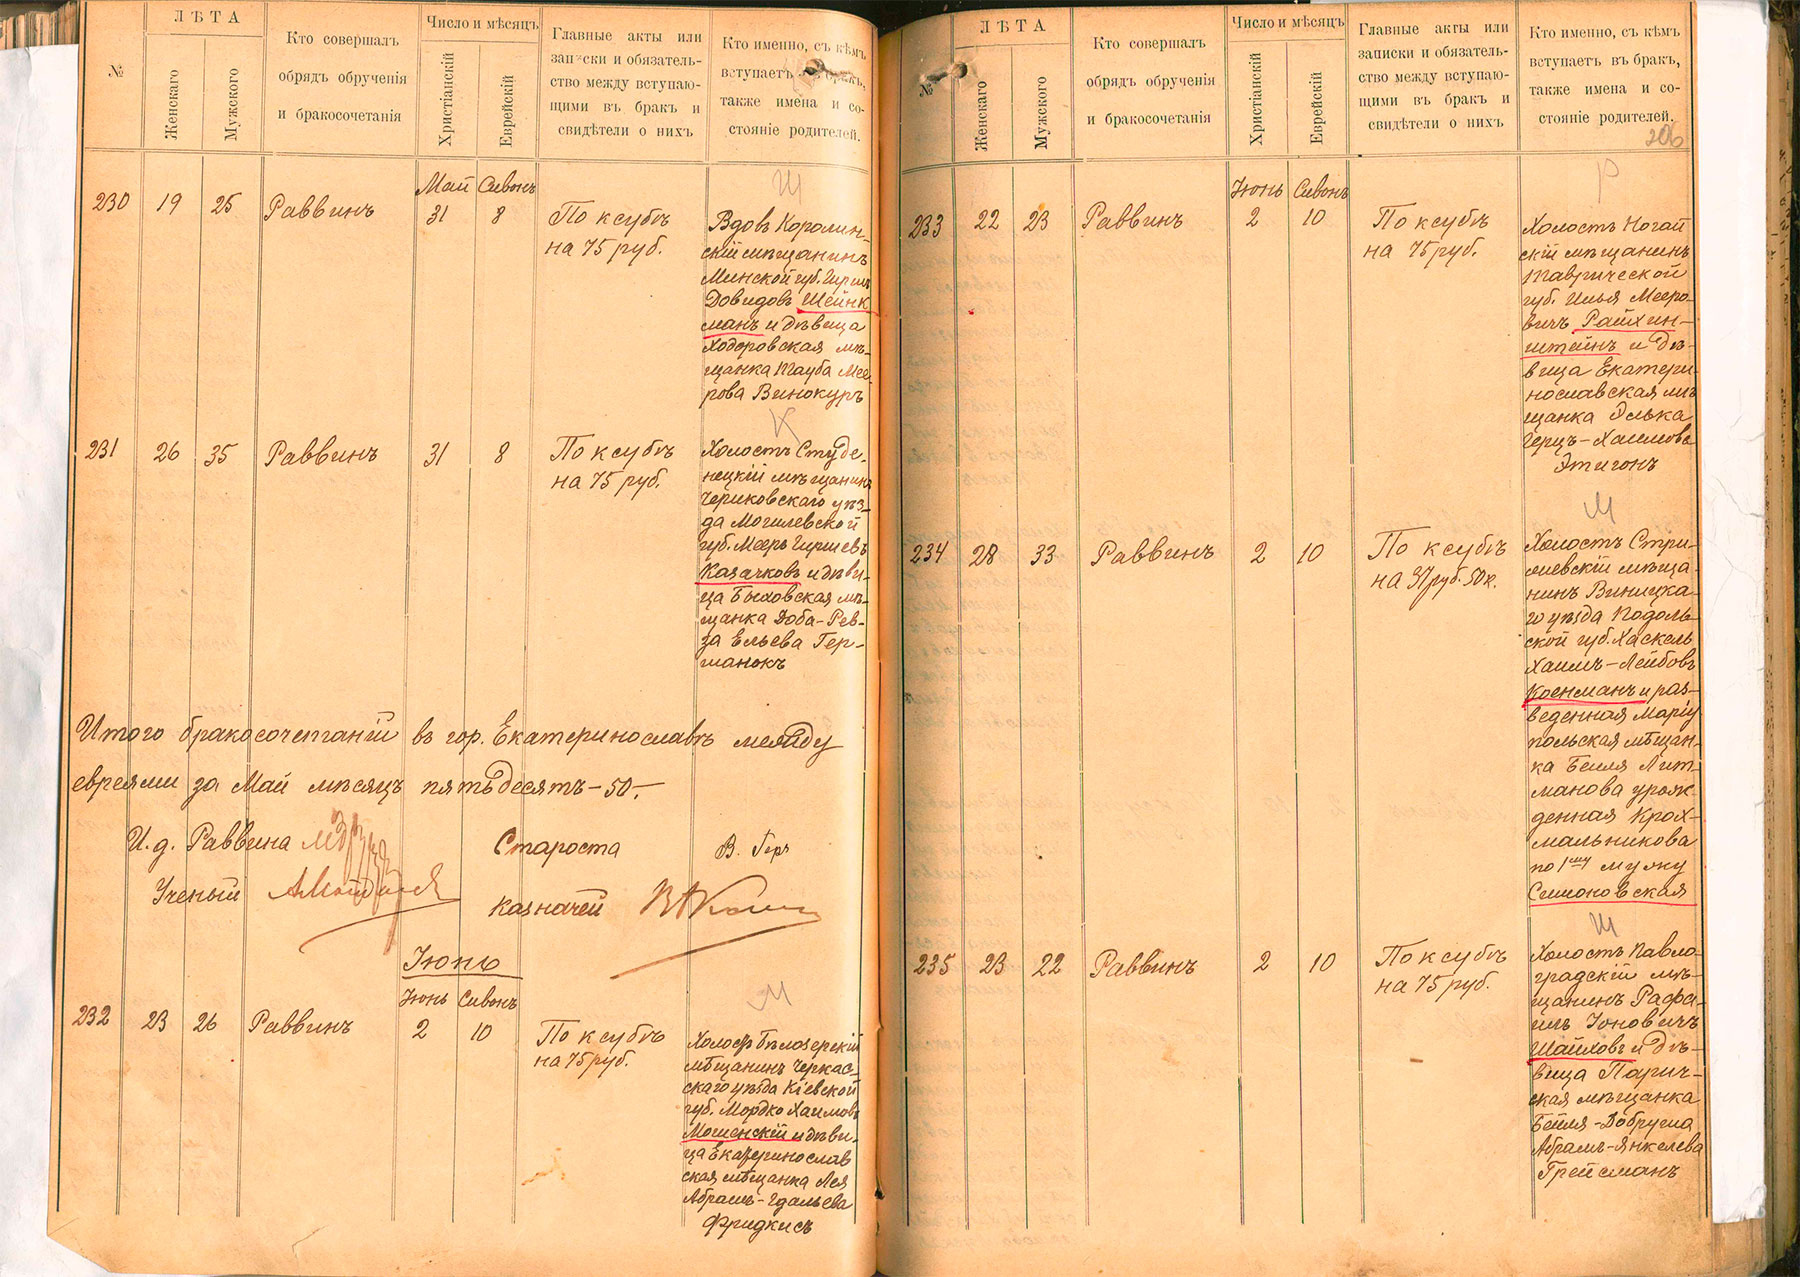 №
ЛѢТА
Женскаго
Мужского
Кто совершалъ
обрядъ обрученія
и бракосочетанія
Число и мѣсяцъ
Христіанскій
Еврейскій
Главные акты или
записки и обязатель-
ство между вступаю-
щими въ бракъ и
свидѣтели о нихъ
Кто именно, съ кѣмъ
вступаетъ въ бракъ,
также имена и со-
стояніе родителей.
Май Сивонъ
Ш
230 19 25 Раввинъ 31 8
По ксубѣ
на 75 руб.
Вдовъ Королин-
скій мѣщанинъ
Минской губ. Гиршъ
Довидовъ Шейнк
манъ и дѣвица
Ходоровская мѣ-
щанка Тауба Мее-
рова Винокуръ
К
231 26 35 Раввинъ 31 8
По ксубѣ
на 75 руб.
Холостъ Студе-
нецкій мѣщанинъ
Чериковскаго уѣз-
да Могилевской
губ. Мееръ Гиршевъ
Казачковъ и дѣви-
ца Быховская мѣ-
щанка Доба-Рев-
за Ельева Гер-
манокъ
Итого бракосочетаній въ гор. Екатеринославѣ между
евреями за Май мѣсяцъ пятьдесятъ – 50. –
И. д. Раввина
Староста В. Геръ
Ученый
Казначей
Іюнь
Іюнь Сивонъ
М
232 23 26 Раввинъ 2 10
По ксубѣ
на 75 руб.
Холостъ Бѣлозерскій
мѣщанинъ Черкас-
скаго уѣзда Кіевской
губ. Мордко Хаимовъ
Мошенскій и дѣви-
ца Екатеринослав
ская мѣщанка Лея
Абрамъ-Гдальева
Фридкисъ
№
ЛѢТА
Женскаго
Мужского
Кто совершалъ
обрядъ обрученія
и бракосочетанія
Число и мѣсяцъ
Христіанскій
Еврейскій
Главные акты или
записки и обязатель-
ство между вступаю-
щими въ бракъ и
свидѣтели о нихъ
Кто именно, съ кѣмъ
вступаетъ въ бракъ,
также имена и со-
стояніе родителей.
206
Іюнь Сивонъ
Р
233 22 23 Раввинъ 2 10
По ксубѣ
на 75 руб.
Холостъ Ногай
скій мѣщанинъ
Таврической
губ. Илья Мееро-
вичъ Райхин-
штейнъ и дѣ-
вица Екатери-
нославская мѣ
щанка Элька
Герцъ-Хаимова
Этигонъ
М
234 28 33 Раввинъ 2 10
По ксубѣ
на 37 руб. 50 к.
Холостъ Стри-
жевскій мѣща-
нинъ Виницка-
го уѣзда Подоль-
ской губ. Хаскель
Хаимъ-Лейбовъ
Коснманъ и раз-
веденная Маріу
польская мѣщан-
ка Бейля Лит-
манова урож-
денная Крох-
мальникова
по 1му мужу
Симоновская
Ш
235 23 22 Раввинъ 2 10
По ксубѣ
на 75 руб.
Холостъ Павло-
градскій мѣ-
щанинъ Рафа-
илъ Іоновичъ
Шайховъ и дѣ-
вица Парич-
ская мѣщанка
Бейля-Добруша
Абрамъ-Янкелева
Грейсманъ